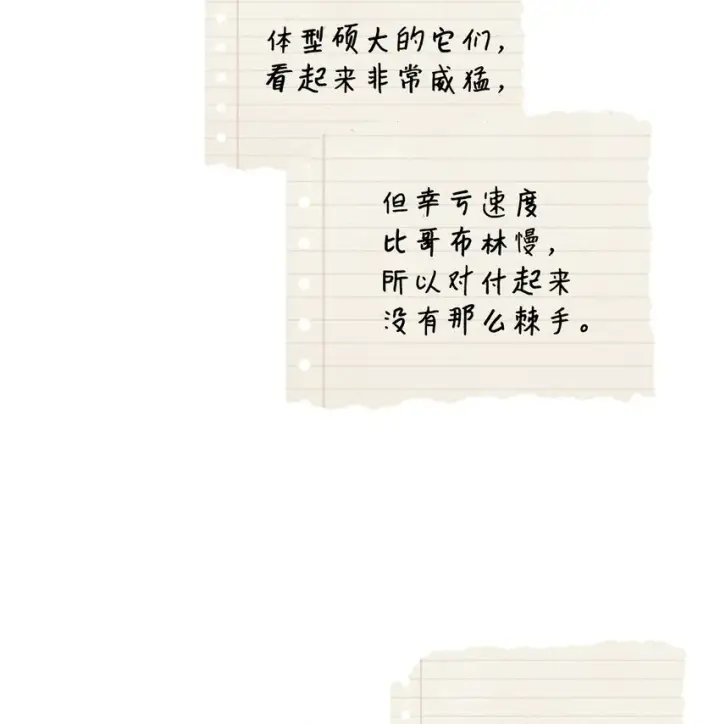 体型硕大的它们，
看起来非常威猛，
但幸亏速度
比哥布林慢，
所以对付起来
没有那么棘手。